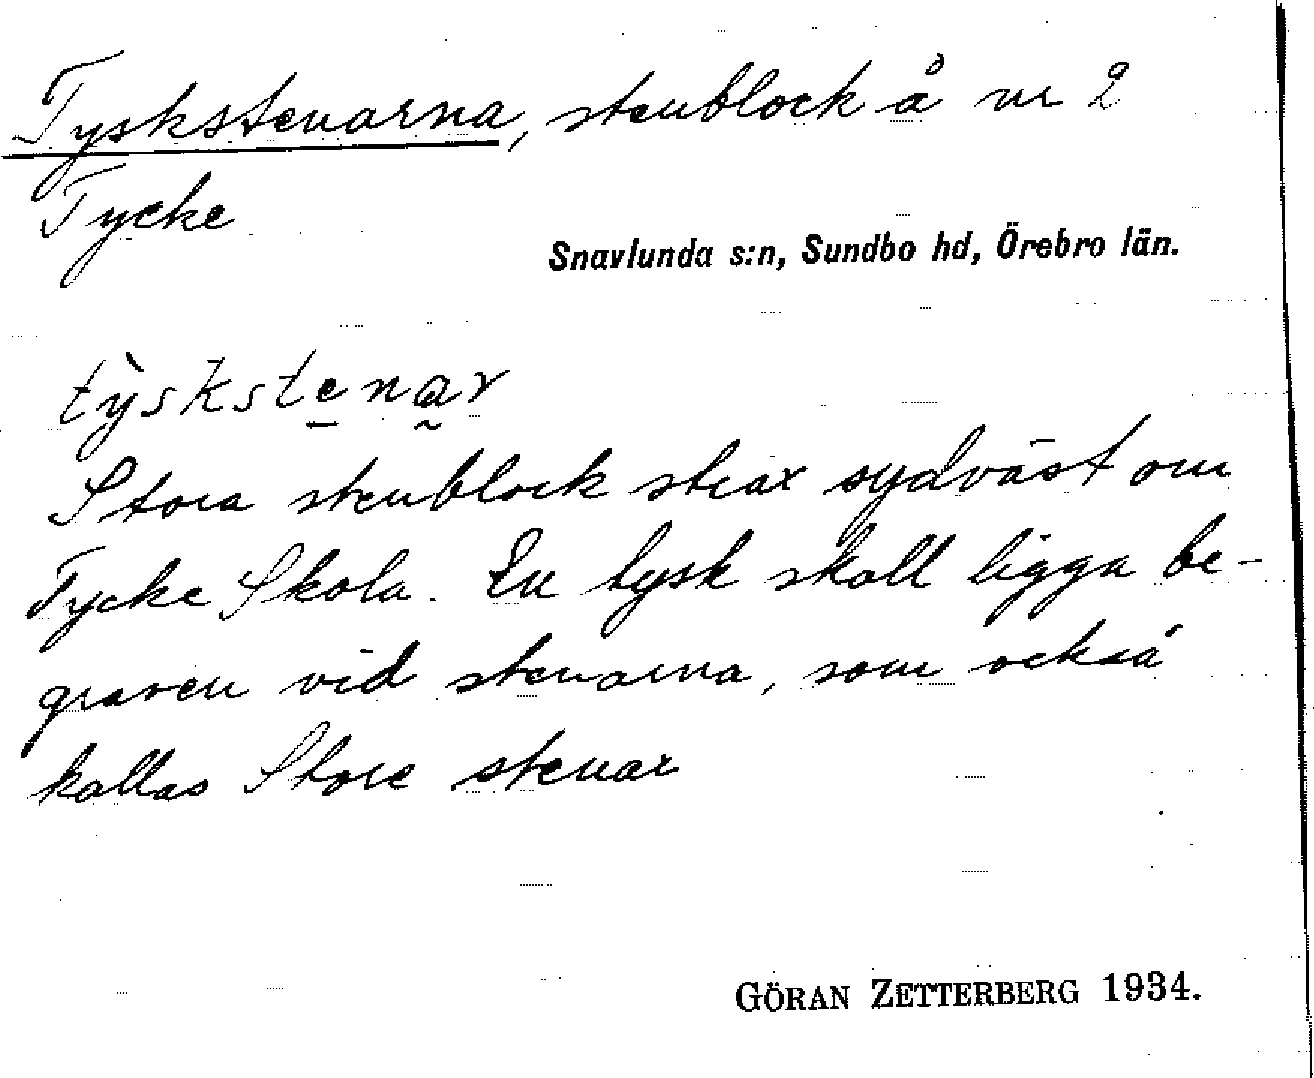 Tyskstenarna, stenblock å nr 2
Tycke
Snavlunda s:n, Sundbo hd, Örebro län.
tỳskstenar
Stora stenblock strax sydväst om
Tycke Skola. En tysk skall ligga be-
graven vid stenarna, som också
kallas Store stenar
GÖRAN ZETTERBERG 1934.